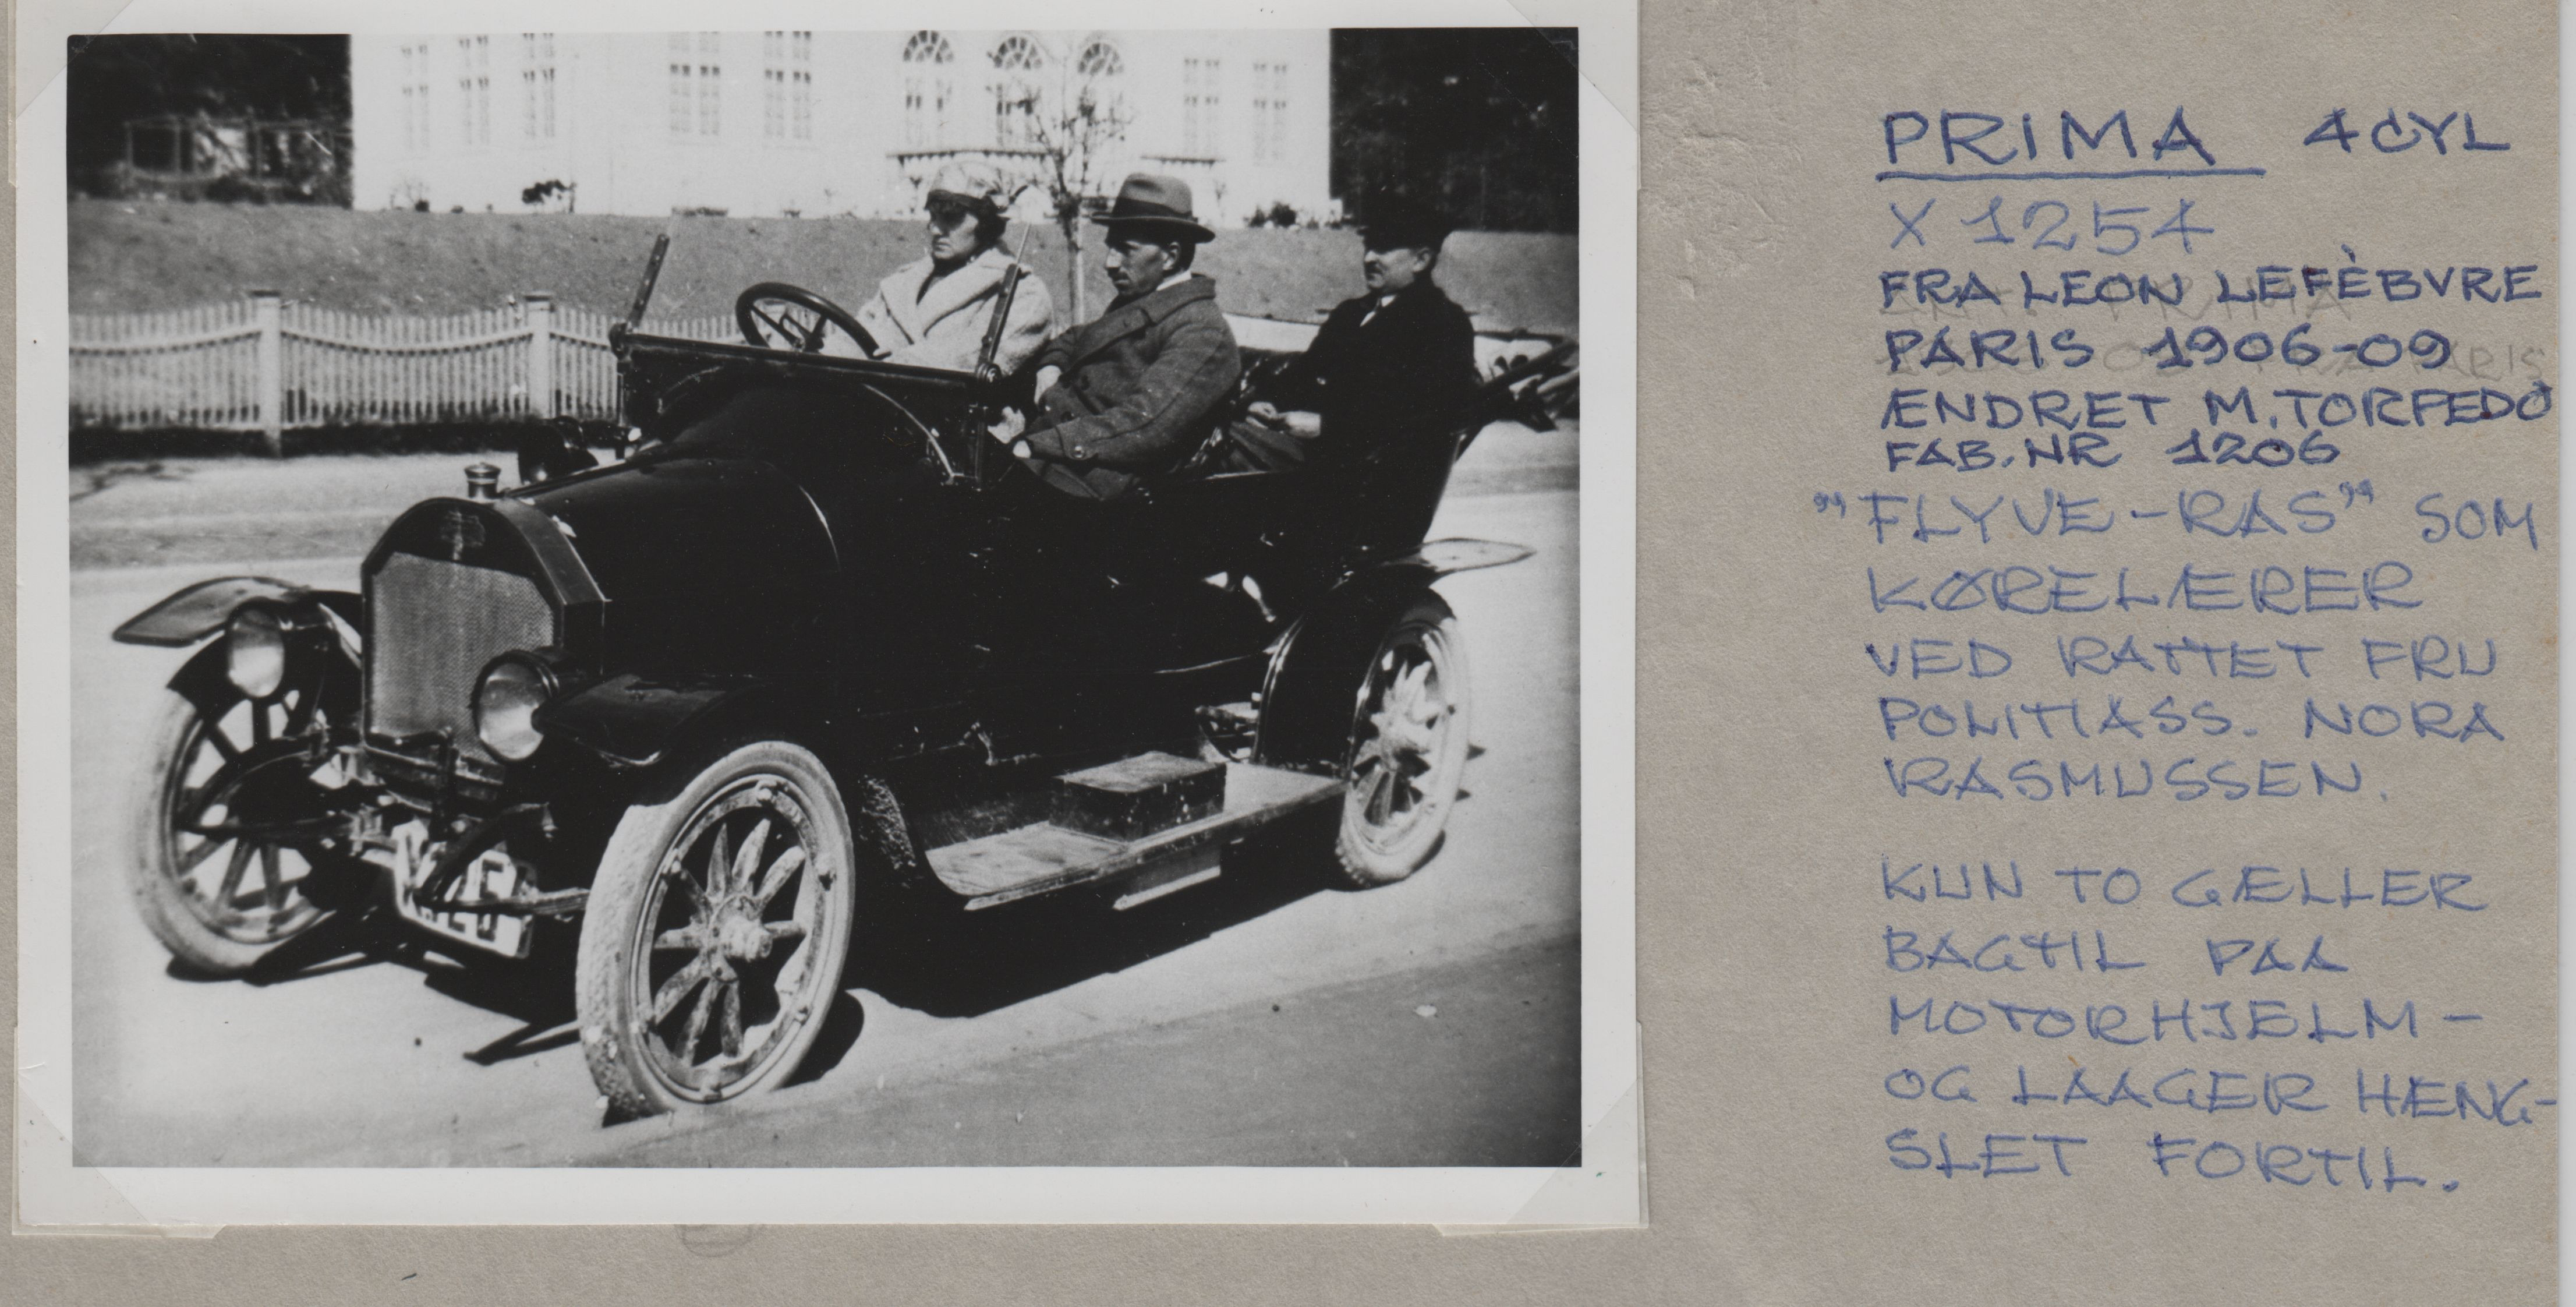 PRIMA 4 CYL
X 1254
FRA LEON LEFÈBVRE
PARIS 1906-09
ÆNDRET M. TORPEDO
FAB. NR 1206
"FLYVE-RAS" SOM
KØRELÆRER
VED RATTET FRU
POLITIASS. NORA
RASMUSSEN.
KUN TO GÆLLER
BAGTIL PAA
MOTORHJELM-
OG LAAGER HÆNG-
SLET FORTIL.